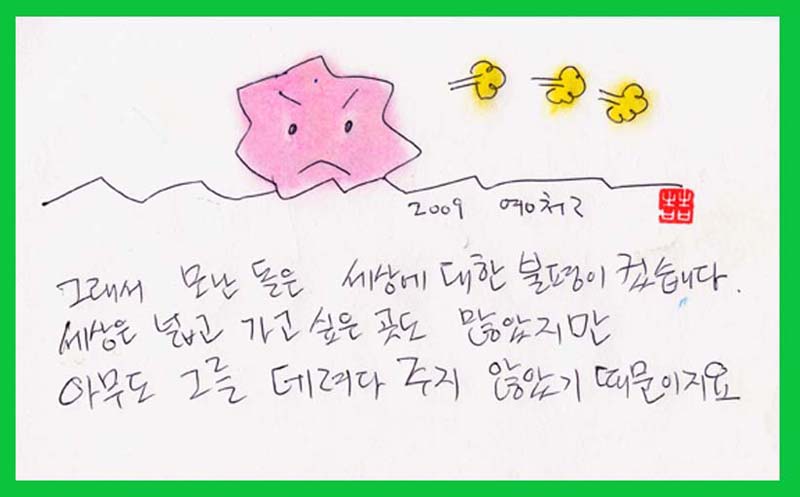 2009
그래서 모난 돌은 세상에 대한 불평이 컸습니다.
세상은 넓고 가고 싶은 곳도 많았지만
아무도 그를 데려다 주지 않았기 때문이지요